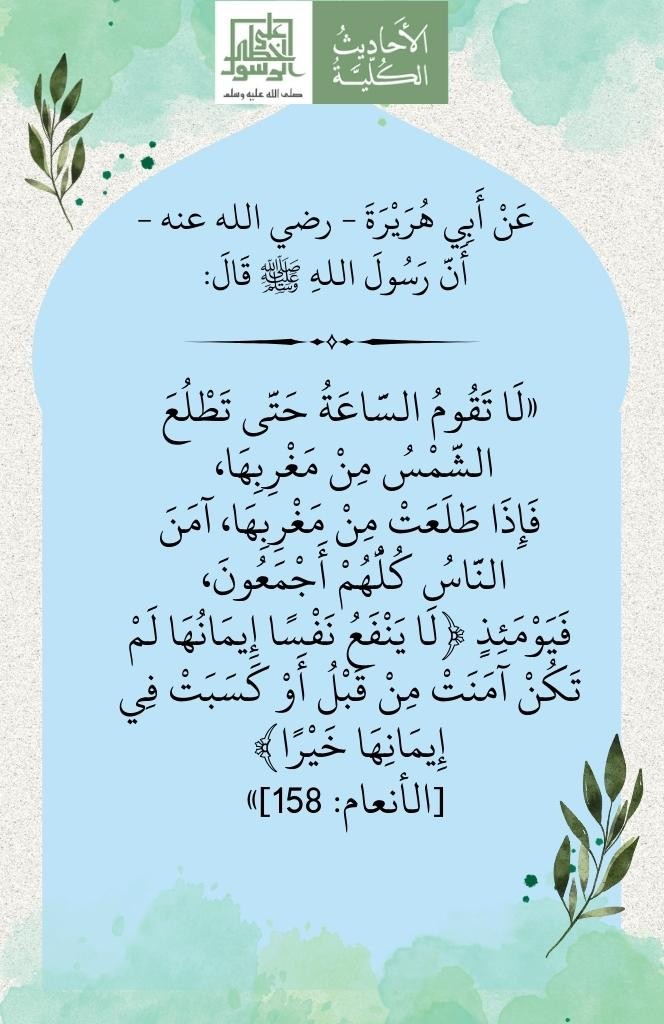 الأَحَادِيثُ
الكُلِّيَّةُ
على
خطى
الرسول
صلى الله عليه وسلم
عَنْ أَبِي هُرَيْرَةَ - رضي الله عنه -
أَنّ رَسُولَ اللهِ ﷺ قَالَ:
«لَا تَقُومُ السّاعَةُ حَتّى تَطْلُعَ
الشّمْسُ مِنْ مَغْرِبِهَا،
فَإِذَا طَلَعَتْ مِنْ مَغْرِبِهَا، آمَنَ
النّاسُ كُلُّهُمْ أَجْمَعُونَ،
فَيَوْمَئِذٍ ﴿لَا يَنْفَعُ نَفْسًا إِيمَانُهَا لَمْ
تَكُنْ آمَنَتْ مِنْ قَبْلُ أَوْ كَسَبَتْ فِي
إِيمَانِهَا خَيْرًا﴾
[الأنعام: 158]»